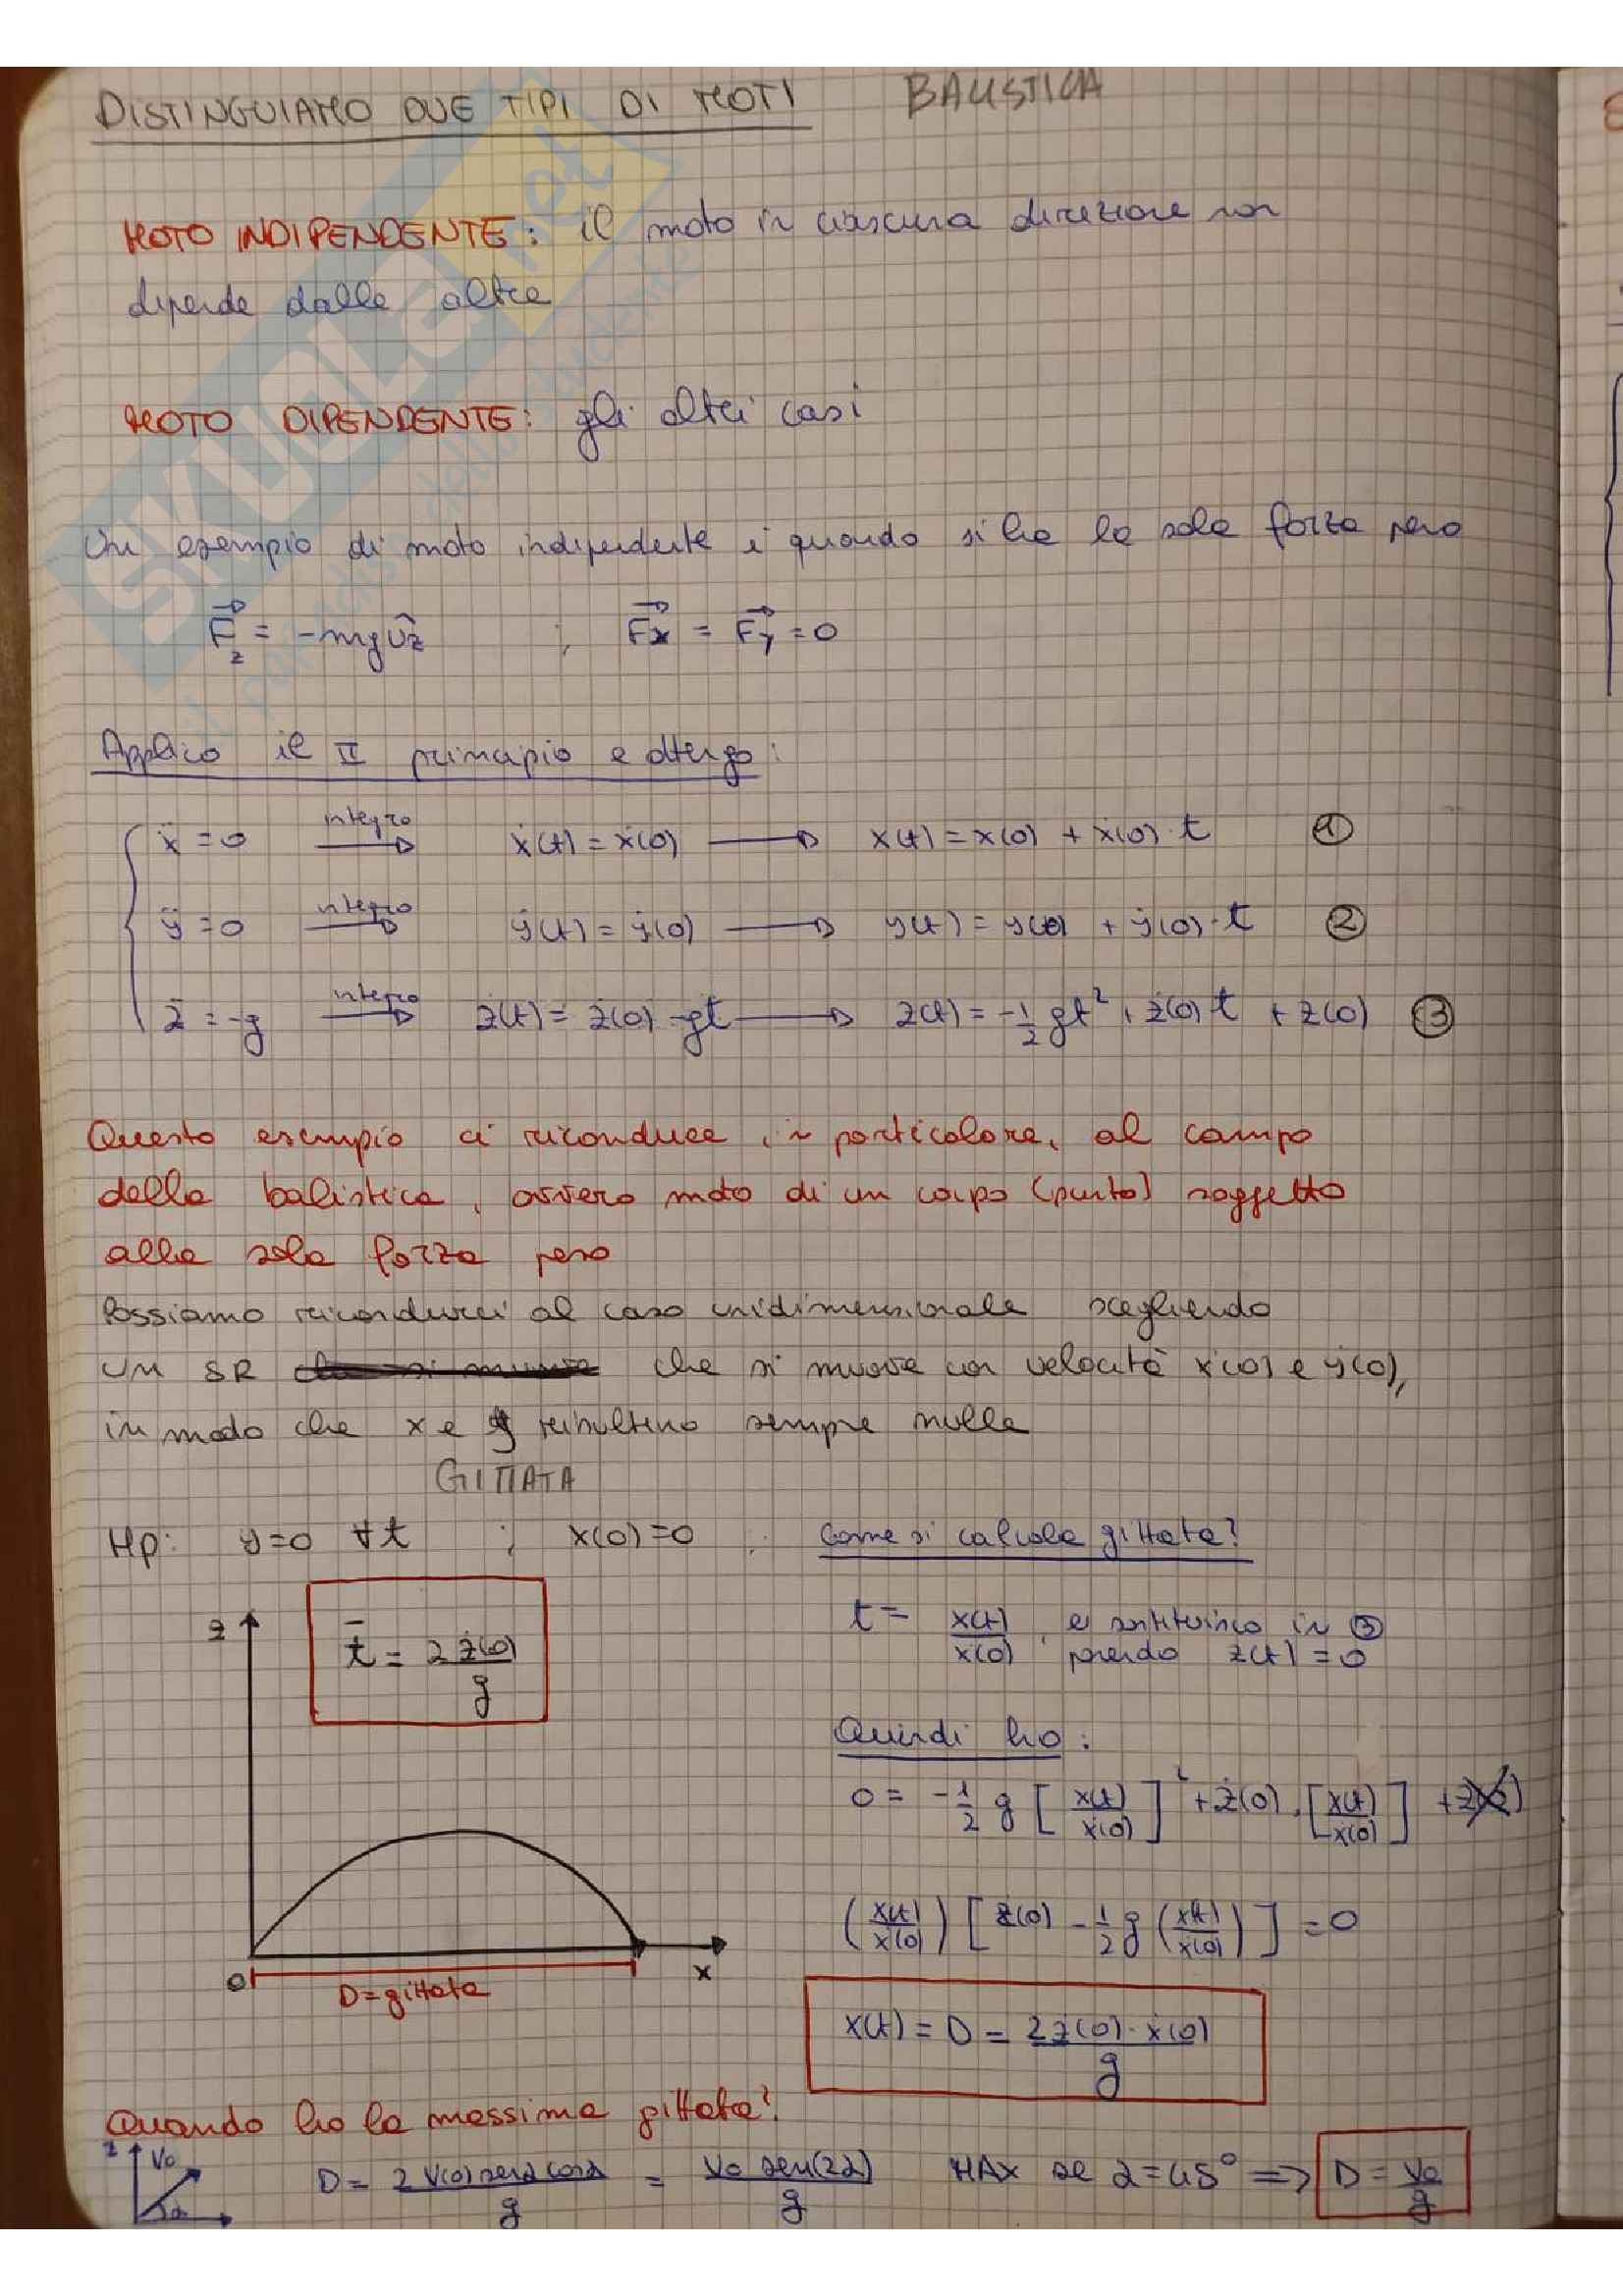 DISTINGUIAMO DUE TIPI DI MOTI BALISTICA
MOTO INDIPENDENTE: il moto in ciascuna direzione non
dipende dalle altre
MOTO DIPENDENTE: gli altri casi
Un esempio di moto indipendente è quando si ha la sola forza peso
F⃗z = -mg ûz ; F⃗x = F⃗y = 0
Applico il II principio e ottengo:
ẍ = 0 integro → ẋ(t) = ẋ(0) → x(t) = x(0) + ẋ(0)·t ①
ÿ = 0 integro → ẏ(t) = ẏ(0) → y(t) = y(0) + ẏ(0)·t ②
z̈ = -g integro → ż(t) = ż(0) - gt → z(t) = -1/2 gt² + ż(0)t + z(0) ③
Questo esempio ci riconduce, in particolare, al campo
della balistica, ovvero moto di un corpo (punto) soggetto
alla sola forza peso
Possiamo ricondurci al caso unidimensionale scegliendo
un SR che si muove con velocità ẋ(0) e ẏ(0),
in modo che x e y risultino sempre nulle
GITTATA
Hp: y=0 ∀t ; x(0)=0 Come si calcola gittata?
z
t̄ = 2ż(0)/g
t = x(t)/ẋ(0), e sostituisco in ③
ponendo z(t) = 0
Quindi ho:
0 = -1/2 g [x(t)/ẋ(0)]² + ż(0)·[x(t)/ẋ(0)] + z(0)
(x(t)/ẋ(0)) [ż(0) - 1/2 g (x(t)/ẋ(0))] = 0
O x
D=gittata
x(t) = D = 2ż(0)·ẋ(0)/g
Quando ho la massima gittata?
z V0 α
D = 2V(0)senα cosα/g = V0 sen(2α)/g MAX se α=45° => D = V0/g
SKUOLA.net
il paradiso dello studente